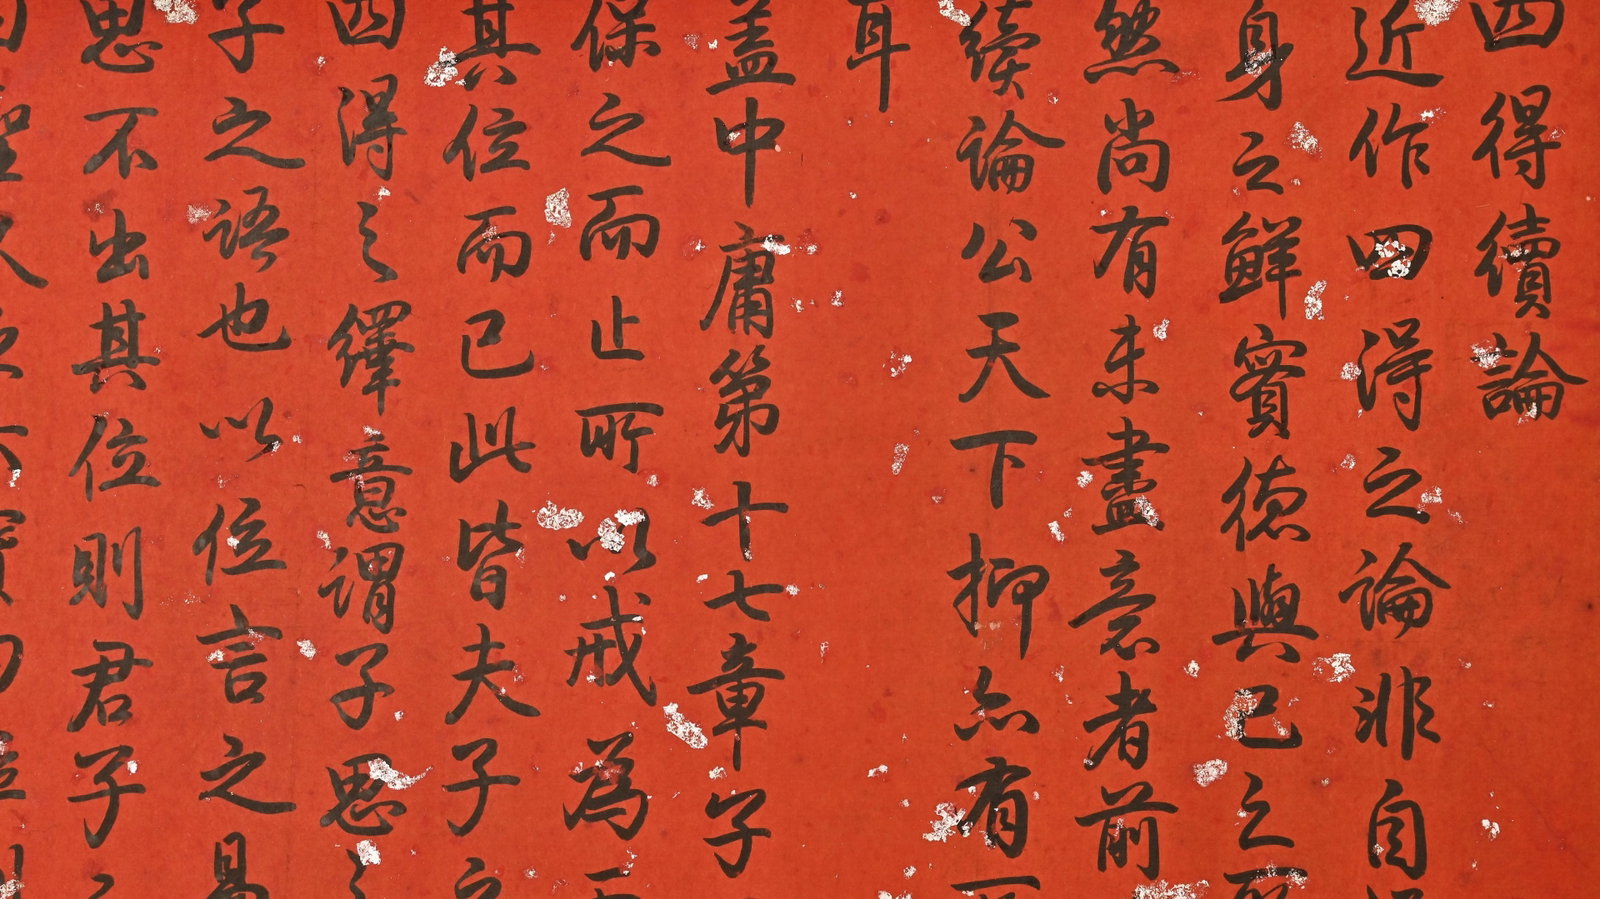 四得續論
近作四得之論非自
身之鮮實德與已之
然尚有未盡意者前
續論公天下抑亦有
耳
蓋中庸第十七章子
保之而止所以戒為
其位而已此皆夫子之
四得之繹意謂子思之
子之語也以位言之易
思不出其位則君子